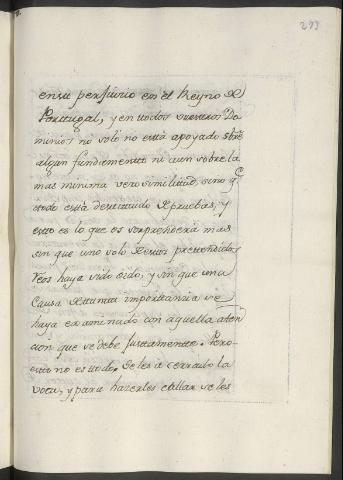 293
en su perjuicio en el Reyno de
Portugal, y en todos vuestros Do
minios no solo no está apoyado sbre
algun fundamento ni aun sobre la
mas minima verosimilitud, sino qe
todo está destituido de pruebas, y
esto es lo que os sorprhenderá mas
sin que uno solo de estos pretendidos
reos haya sido oido, y sin que una
Causa de tanta importanzia se
haya examinado con aquella aten
cion que se debe justamente. Pero
esto no es todo. Se les a cerrado la
voca, y para hazerles callar se les